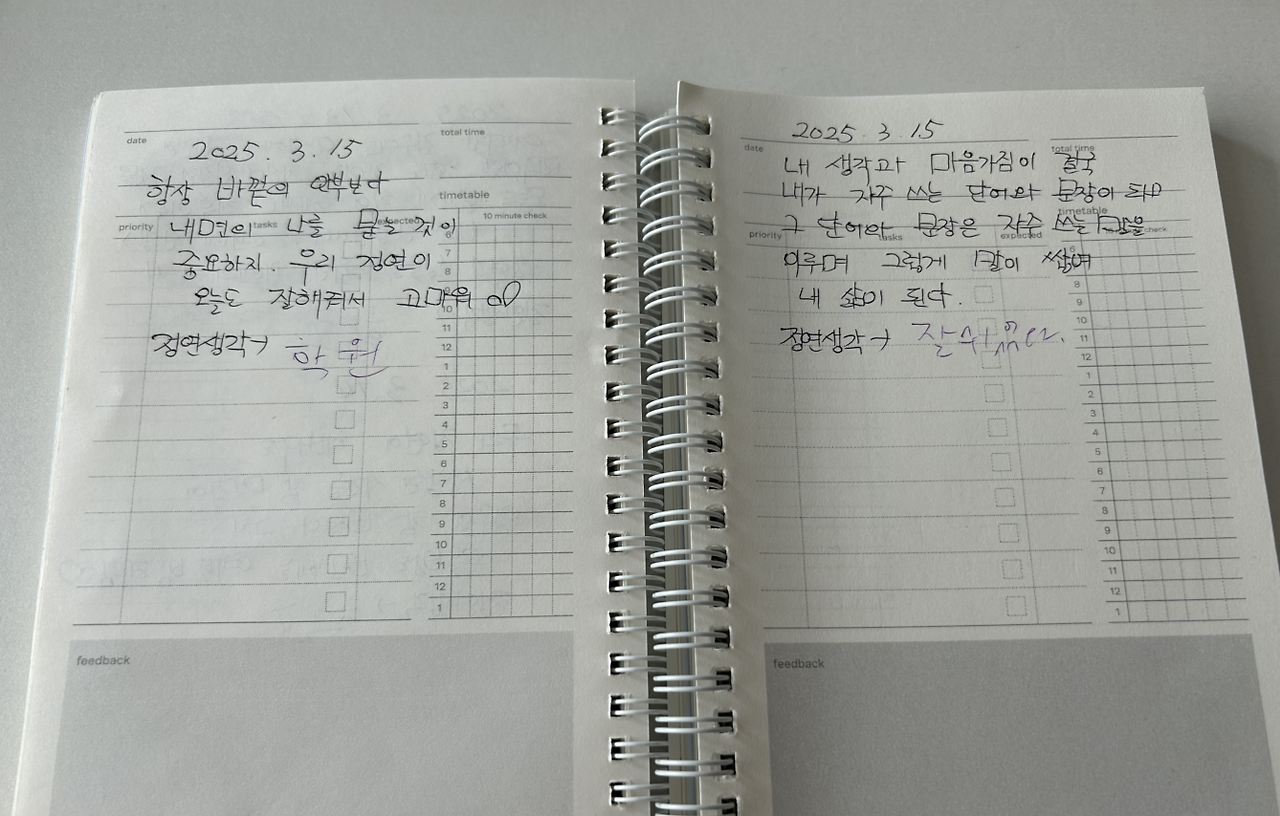 date
2025. 3. 15
total time
항상 바깥의 안부보다
timetable
priority
tasks
expected
10 minute check
내면의 나를 묻는 것이
중요하지. 우리 정연이
오늘도 잘해줘서 고마워
정연생각→ 학원
6
7
8
9
10
11
12
1
2
3
4
5
6
7
8
9
10
11
12
1
feedback
2025. 3. 15
date
total time
내 생각과 마음가짐이 결국
내가 자주 쓰는 단어와 문장이 되고
timetable
그 단어와 문장은 자주 쓰는 말을
priority
tasks
expected
check
이루며 그렇게 말이 쌓여
내 삶이 된다.
정연생각→ 잘
6
8
9
10
11
12
1
2
3
4
5
6
7
8
9
10
11
12
1
feedback